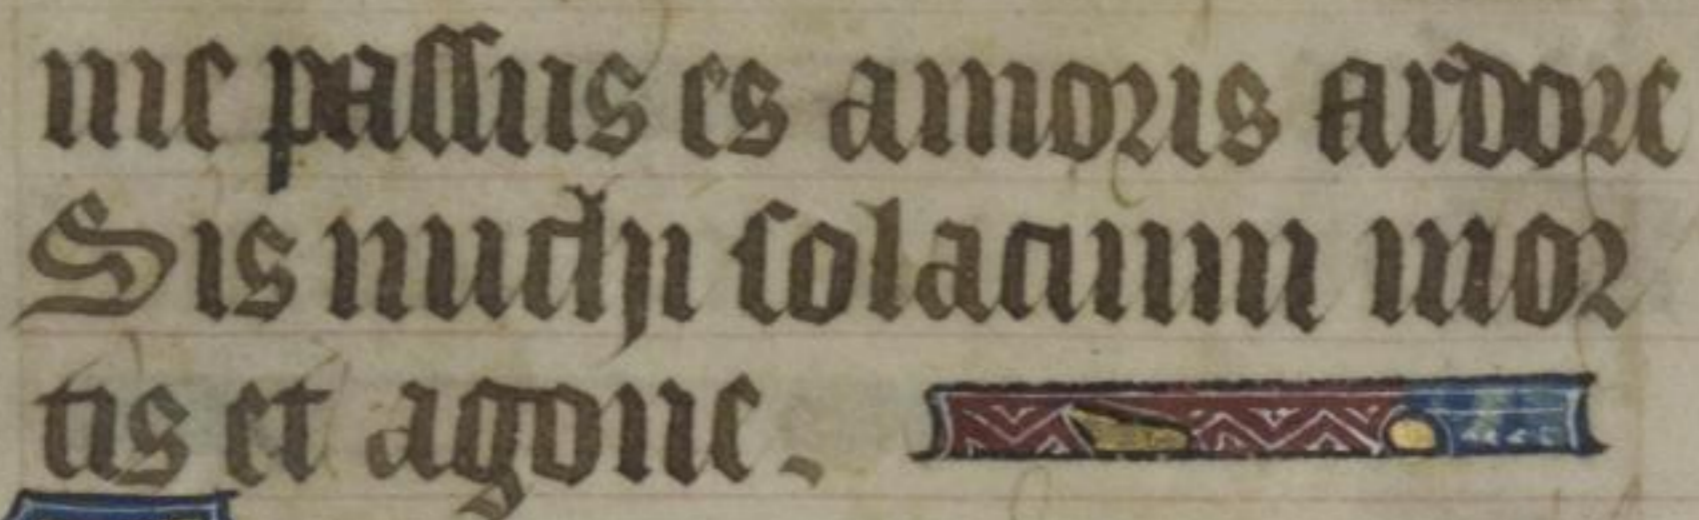 me passus es amoris ardore
Sis michi solacium mor
tis et agone.